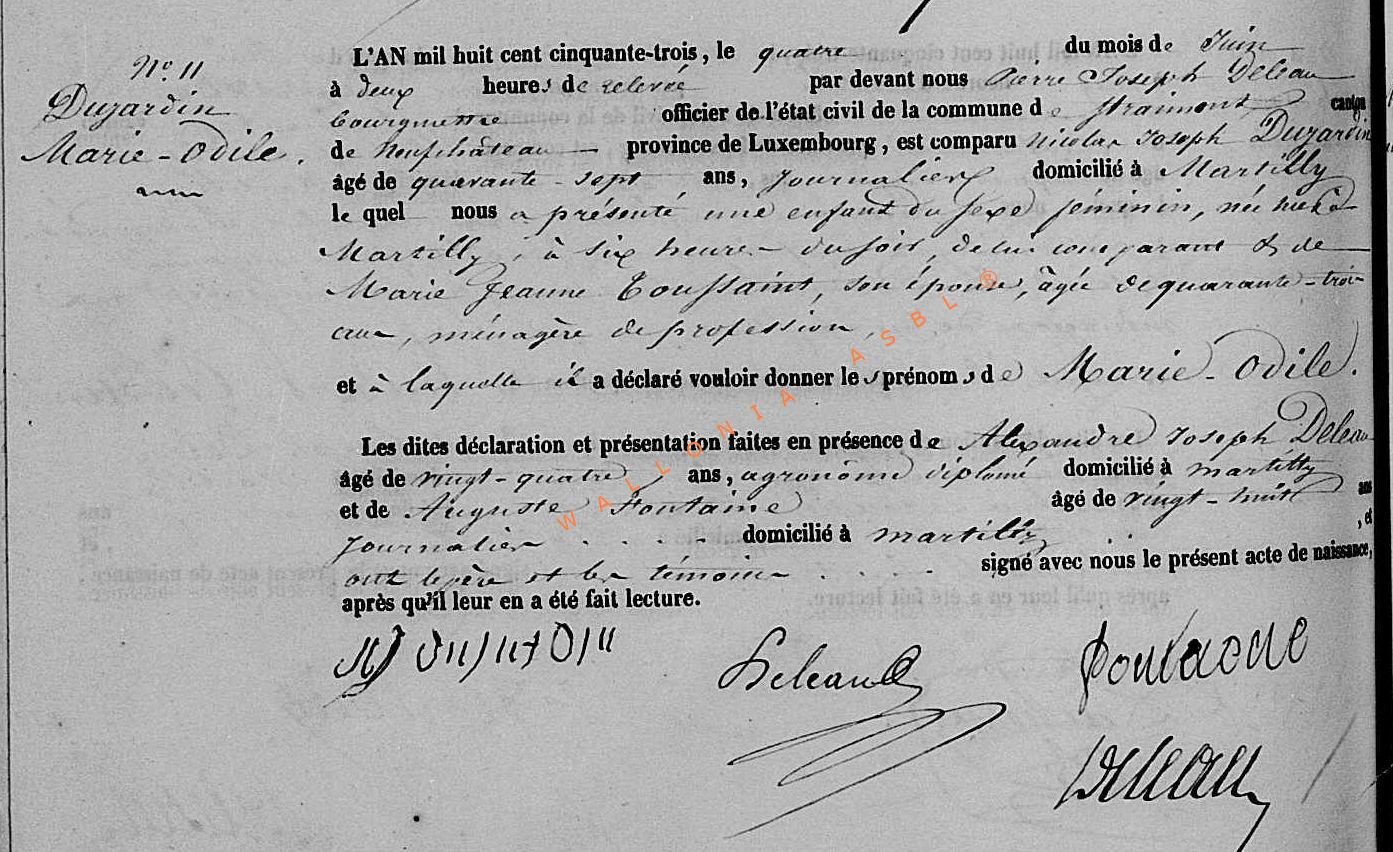 N° 11
Dujardin
Marie-Odile.
L'AN mil huit cent cinquante-trois, le quatre du mois de Juin
à deux heures de relevée par devant nous Pierre Joseph Deleau
bourgmestre officier de l'état civil de la commune de Straimont, canton
de Neufchâteau province de Luxembourg, est comparu Nicolas Joseph Dujardin
âgé de quarante-sept ans, Journalier domicilié à Martilly
le quel nous a présenté une enfant du sexe féminin, née hier à
Martilly, à six heures du soir, de lui comparant & de
Marie Jeanne Toussaint, son épouse, âgée de quarante-trois
ans, ménagère de profession,
et à laquelle il a déclaré vouloir donner les prénoms de Marie-Odile.
Les dites déclaration et présentation faites en présence de Alexandre Joseph Deleau
âgé de vingt-quatre ans, agronôme diplomé domicilié à martilly
et de Auguste Fontaine âgé de vingt-huit ans
Journalier . . . . domicilié à martilly . . , et
ont le père et les témoins . . . . signé avec nous le présent acte de naissance,
après qu'il leur en a été fait lecture.
Deleau
Deleau
WALLONIA ASBL ®